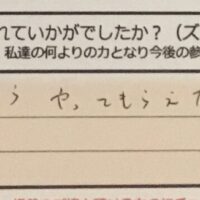 れていかがでしたか？（ズ
私達の何よりの力となり今後の参
う やってもらえた